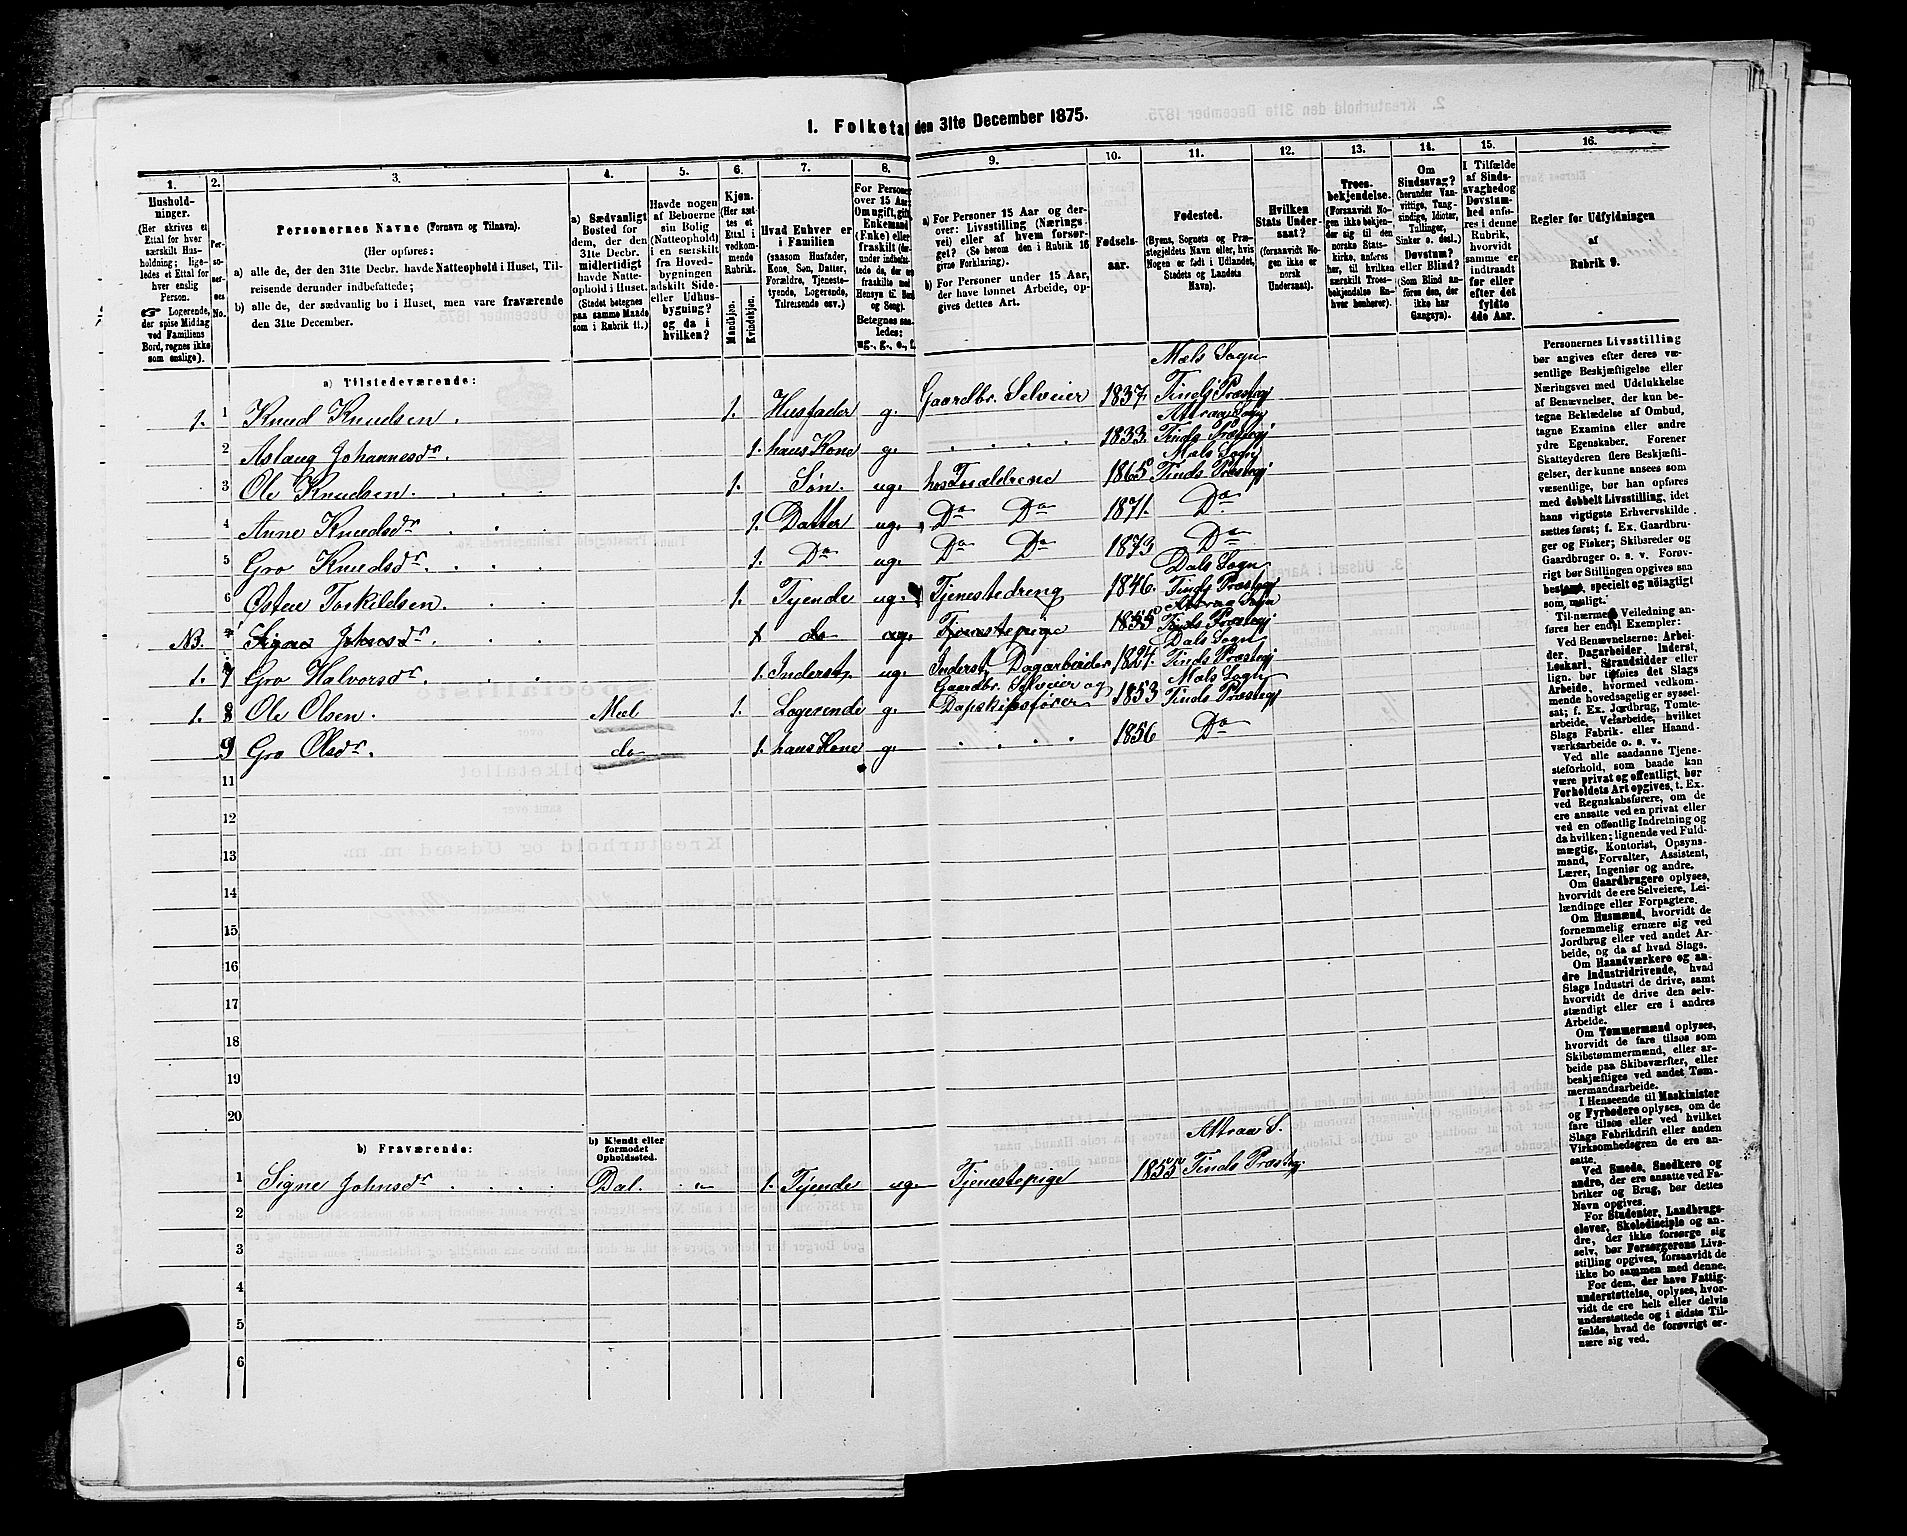 1. Folketal den 31te December 1875.
1. 2. 3. 4. 5. 6. 7. 8. 9. 10. 11. 12. 13. 14. 15. 16.
Hushold-
ninger.
(Her skrives et
Ettal for hver
særskilt Hus-
holdning; lige-
ledes et Ettal for
hver enslig
Person.
☞ Logerende,
der spise Middag
ved Familiens
Bord, regnes ikke
som enslige).
Per-
so-
ner-
nes
No.
Personernes Navne (Fornavn og Tilnavn).
(Her opføres:
a) alle de, der den 31te Decbr. havde Natteophold i Huset, Til-
reisende derunder indbefattede;
b) alle de, der sædvanlig bo i Huset, men vare fraværende
den 31te December.
a) Sædvanligt
Bosted for
dem, der den
31te Decbr.
midlertidigt
havde Natte-
ophold i Huset.
(Stedet betegnes
paa samme Maade
som i Rubrik 11.)
Havde nogen
af Beboerne
sin Bolig
(Natteophold)
i en særskilt
fra Hoved-
bygningen
adskilt Side-
eller Udhus-
bygning?
og da i
hvilken?
Kjøn.
(Her sæt-
tes et
Ettal i
vedkom-
mende
Rubrik.
Mandkjøn.
Kvindekjøn.
Hvad Enhver er
i Familien
(saasom Husfader,
Kone, Søn, Datter,
Forældre, Tjeneste-
tyende, Logerende,
Tilreisende osv.)
For Personer
over 15 Aar:
Om ugift, gift,
Enkemand
(Enke) eller
fraskilt (der-
under indbefat-
tede de, der ere
fraskilte med
Hensyn til Bord
og Seng).
Betegnes saa-
ledes:
ug., g., e., f.
a) For Personer 15 Aar og der-
over: Livsstilling (Nærings-
vei) eller af hvem forsør-
get? (Se herom den i Rubrik 16
givne Forklaring).
b) For Personer under 15 Aar,
der have lønnet Arbeide, op-
gives dettes Art.
Fødsels-
aar.
Fødested.
(Byens, Sognets og Præ-
stegjeldets Navn eller, hvis
Nogen er født i Udlandet,
Stedets og Landets
Navn).
Hvilken
Stats Under-
saat?
(forsaavidt No-
gen ikke er
norsk
Undersaat).
Troes-
bekjendelse.
(Forsaavidt No-
gen ikke bekjen-
der sig til den
norske Stats-
kirke, anføres
her, til hvilken
særskilt Troes-
bekjendelse En-
hver henhører).
Om
Sindssvag?
(herunder Van-
vittige, Tung-
sindige, Idioter,
Tullinger,
Sinker o. desl.)
Døvstum?
eller Blind?
(Som Blind an-
føres den, der
ikke har
Gangsyn).
I Tilfælde
af Sinds-
svaghed og
Døvstum-
hed anfø-
res i denne
Rubrik,
hvorvidt
samme er
indtraadt
før eller
efter det
fyldte
4de Aar.
Regler for Udfyldningen
af
Rubrik 9.
a) Tilstedeværende:
Mæls Sogn
1. 1 Knud Knudsen. 1. Husfader g. Gaardbr. Selveier 1837 Tinds Præstegj
Attraa Sogn
2 Aslaug Johannesdr. 1. hans Kone g. . . . . 1833. Tinds Præstegj
Mæls Sogn
3 Ole Knudsen. . . . 1. Søn. ug. hos Forældrene 1865 Tinds Præstegj
4 Anne Knudsdr . . 1. Datter ug. Do Do 1871. Do
5 Gro Knudsdr. . . . 1. Do ug. Do Do 1873 Do
Dals Sogn
6 Østen Torkildsen. . . 1. Tyende ug. Tjenestedreng 1846. Tinds Præstegj
Attraa Sogn
NB. 7 Signe Johnsdr . . 1 do ug. Tjenestepige 1855 Tinds Præstegj
Dals Sogn
1. 7 Gro Halvorsdr. . . 1. Inderst ug. Inderst Dagarbeider 1824. Tinds Præstegj
Gaardbr. Selveier og Mæls Sogn
1. 8 Ole Olsen. Mæl 1. Logerende g. Dapskibsfører 1853 Tinds Præstegj
9 Gro Olsdr. do 1. hans Kone g. . . . . 1856 Do
11
12
13
14
15
16
17
18
19
20
b) Fraværende:
b) Kjendt eller
formodet
Opholdssted.
Attraa S.
1 Signe Johnsdr . . . . Dal. 1. Tyende ug. Tjenestepige 1855 Tinds Præstegj.
2
3
4
5
6
Personernes Livsstilling
bør angives efter deres væ-
sentlige Beskjæftigelse eller
Næringsvei med Udelukkelse
af Benævnelser, der kun be-
tegne Beklædelse af Ombud,
tagne Examina eller andre
ydre Egenskaber. Forener
Skatteyderen flere Beskjæfti-
gelser, der kunne ansees som
væsentlige, bør han opføres
med dobbelt Livsstilling, idet
hans vigtigste Erhvervskilde
sættes først; f. Ex. Gaardbru-
ger og Fisker; Skibsreder og
Gaardbruger o. s. v. Forøv-
rigt bør Stillingen opgives saa
bestemt, specielt og nøiagtigt
som muligt.
Til nærmere Veiledning an-
føres her endel Exempler:
Ved Benævnelserne: Arbei-
der, Dagarbeider, Inderst,
Løskarl, Strandsidder eller
lign. bør tilføies det Slags
Arbeide, hvormed vedkom-
mende hovedsagelig er syssel-
sat; f. Ex. Jordbrug, Tomte-
arbeide, Veiarbeide, hvilket
Slags Fabrik- eller Haand-
værksarbeide o. s. v.
Ved alle saadanne Tjene-
steforhold, som baade kan
være privat og offentligt, bør
Forholdets Art opgives, t. Ex.
ved Regnskabsførere, om de
ere ansatte ved en privat eller
ved en offentlig Indretning og
da hvilken; lignende ved Fuld-
mægtig, Kontorist, Opsyns-
mand, Forvalter, Assistent,
Lærer, Ingeniør og andre.
Om Gaardbrugere oplyses,
hvorvidt de ere Selveiere, Lei-
lændinge eller Forpagtere.
Om Husmænd, hvorvidt de
fornemmelig ernære sig ved
Jordbrug eller ved andet Ar-
beide, og da af hvad Slags.
Om Haandværkere og an-
dre Industridrivende, hvad
Slags Industri de drive, samt
hvorvidt de drive den selv-
stændigt eller ere i andres
Arbeide.
Om Tømmermænd oplyses,
hvorvidt de fare tilsøs som
Skibstømmermænd, eller ar-
beide paa Skibsværfter, eller
beskjæftiges ved andet Tøm-
mermandsarbeide.
I Henseende til Maskinister
og Fyrbødere oplyses, om de
fare tilsøs eller ved hvilket
Slags Fabrikdrift eller anden
Virksomhedsgren de ere an-
satte.
Ved Smede, Snedkere og
andre, der ere ansatte ved Fa-
briker og Brug, bør dettes
Navn opgives.
For Studenter, Landbrugs-
elever, Skoledisciple og an-
dre, der ikke forsørge sig
selv, bør Forsørgerens Livs-
stilling opgives, forsaavidt de
ikke bo sammen med denne.
For dem, der have Fattig-
understøttelse, oplyses, hvor-
vidt de ere helt eller delvis
understøttede og i sidste Til-
fælde, hvad de forøvrigt er-
nære sig ved.